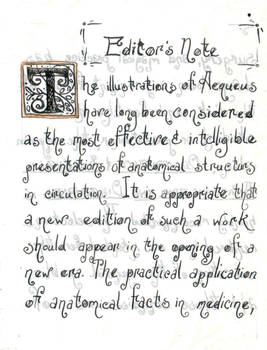 Editor's Note
The illustrations of Aequeus
have long been considered
as the most effective & intelligible
presentations of anatomical structurs
in circulation. It is appropriate that
a new edition of such a work
should appear in the opening of a
new era. The practical application
of anatomical facts in medicine,